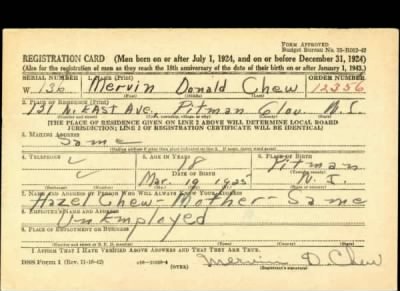 FORM APPROVED
REGISTRATION CARD (Men born on or after July 1, 1924, and on or before December 31, 1924)
(Also for the registration of men as they reach the 18th anniversary of the date of their birth on or after January 1, 1943.)
SERIAL NUMBER 1. NAME (Print) ORDER NUMBER
W. 136 Mervin Donald Chew 12356
2. PLACE OF RESIDENCE (Print)
131 N. East Ave, Pitman Glou. N.J.
[THE PLACE OF RESIDENCE GIVEN ON LINE 2 ABOVE WILL DETERMINE LOCAL BOARD
JURISDICTION; LINE 2 OF REGISTRATION CERTIFICATE WILL BE IDENTICAL]
3. MAILING ADDRESS
Same
4. TELEPHONE 5. AGE IN YEARS 6. PLACE OF BIRTH
18 Pitman
DATE OF BIRTH
Mar. 19 1925 N.J.
7. NAME AND ADDRESS OF PERSON WHO WILL ALWAYS KNOW YOUR ADDRESS
Hazel Chew - Mother - Same
8. EMPLOYER'S NAME AND ADDRESS
Unemployed
9. PLACE OF EMPLOYMENT OR BUSINESS
I AFFIRM THAT I HAVE VERIFIED ABOVE ANSWERS AND THAT THEY ARE TRUE.
DSS Form 1 (OVER) Mervin D. Chew
(Registrant's signature)